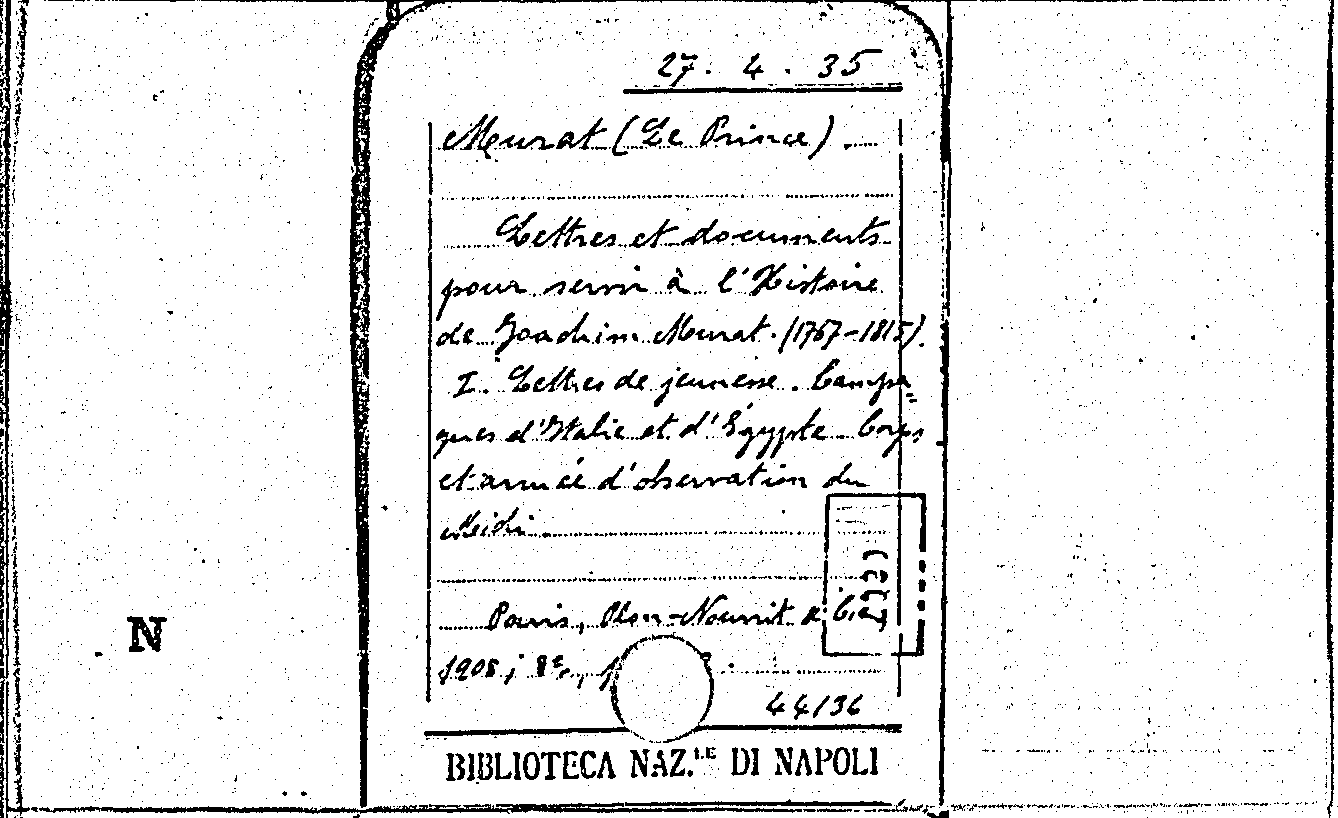 27. 4. 35
Murat (Le Prince).
Lettres et documents
pour servir à l'Histoire
de Joachim Murat. (1767-1815).
I. Lettres de jeunesse. Campa=
gnes d'Italie et d'Égypte. Corps
et armée d'observation du
Midi.
Paris, Plon-Nourrit & Cie,
1908; 8º,
44136
N
BIBLIOTECA NAZ.LE DI NAPOLI